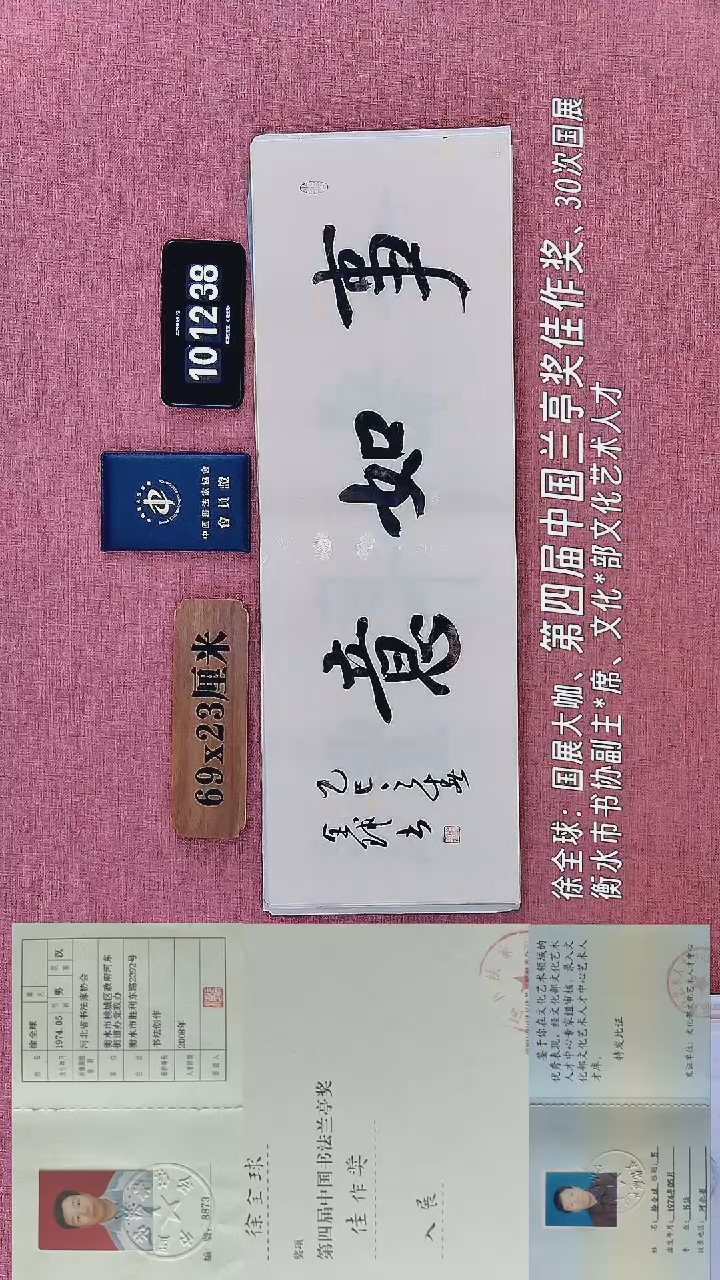 10 12 38
中国书法家协会
會員證
69x23厘米
事如意
乙巳之春
全球书
徐全球：国展大咖、第四届中国兰亭奖佳作奖、30次国展
衡水市书协副主*席、文化*部文化艺术人才
徐全球
1974.05 男 汉
河北省书法家协会
衡水市桃城区政府河东
街道办党政办
衡水市胜利东路2292号
书法创作
2008年
编号：8873
徐全球
奖项
第四届中国书法兰亭奖
佳作奖
入展
鉴于你在文化艺术领域的
优秀表现，经文化部文化艺术
人才中心专家组审核，录入文
化部文化艺术人才中心艺术人
才库。
特发此证
发证单位：文化部文化艺术人才中心
姓名：徐全球 性别：男
出生年月：1974年05月
专业：书法
河北省